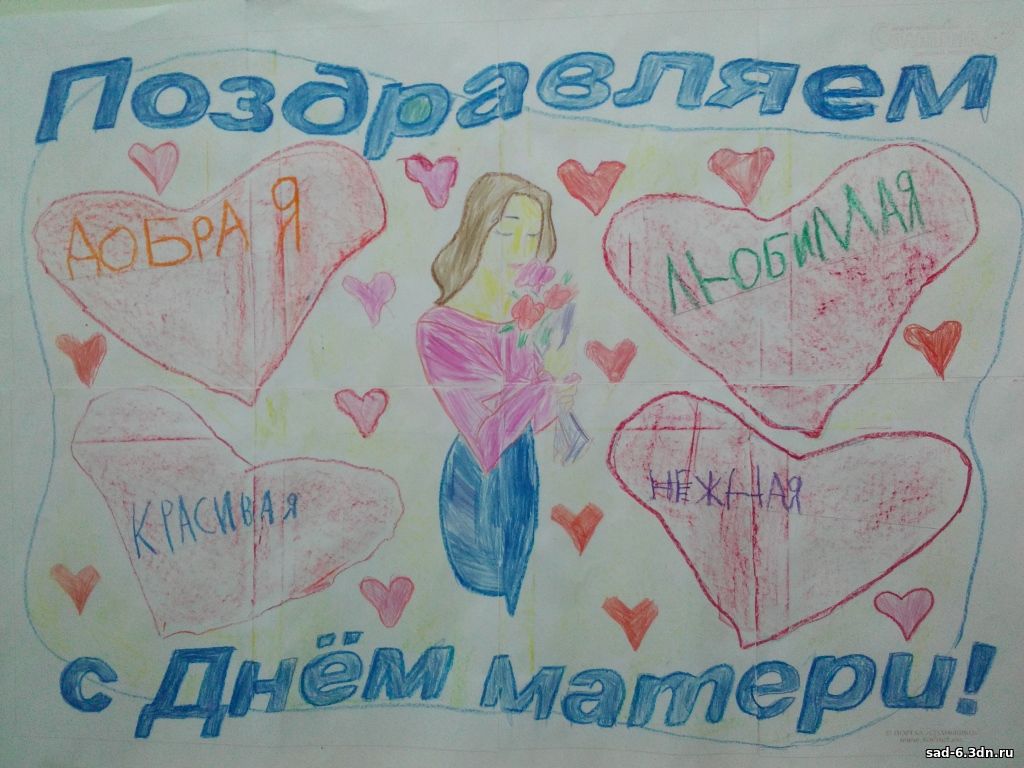 Поздравляем
ДОБРАЯ
ЛЮБИМАЯ
КРАСИВАЯ
НЕЖНАЯ
с Днём матери!
sad-6.3dn.ru